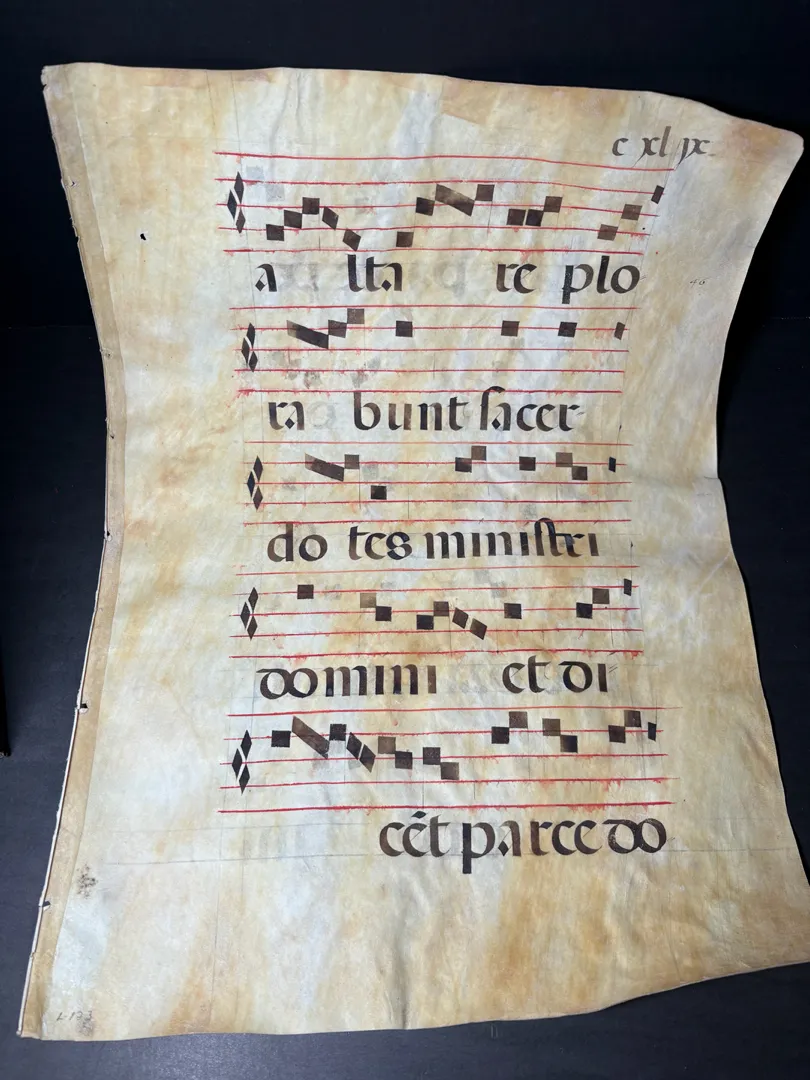 c xl ix
46
a lta re plo
ra bunt sacer-
do tes ministri
domini et di
cēt parce do
L-133